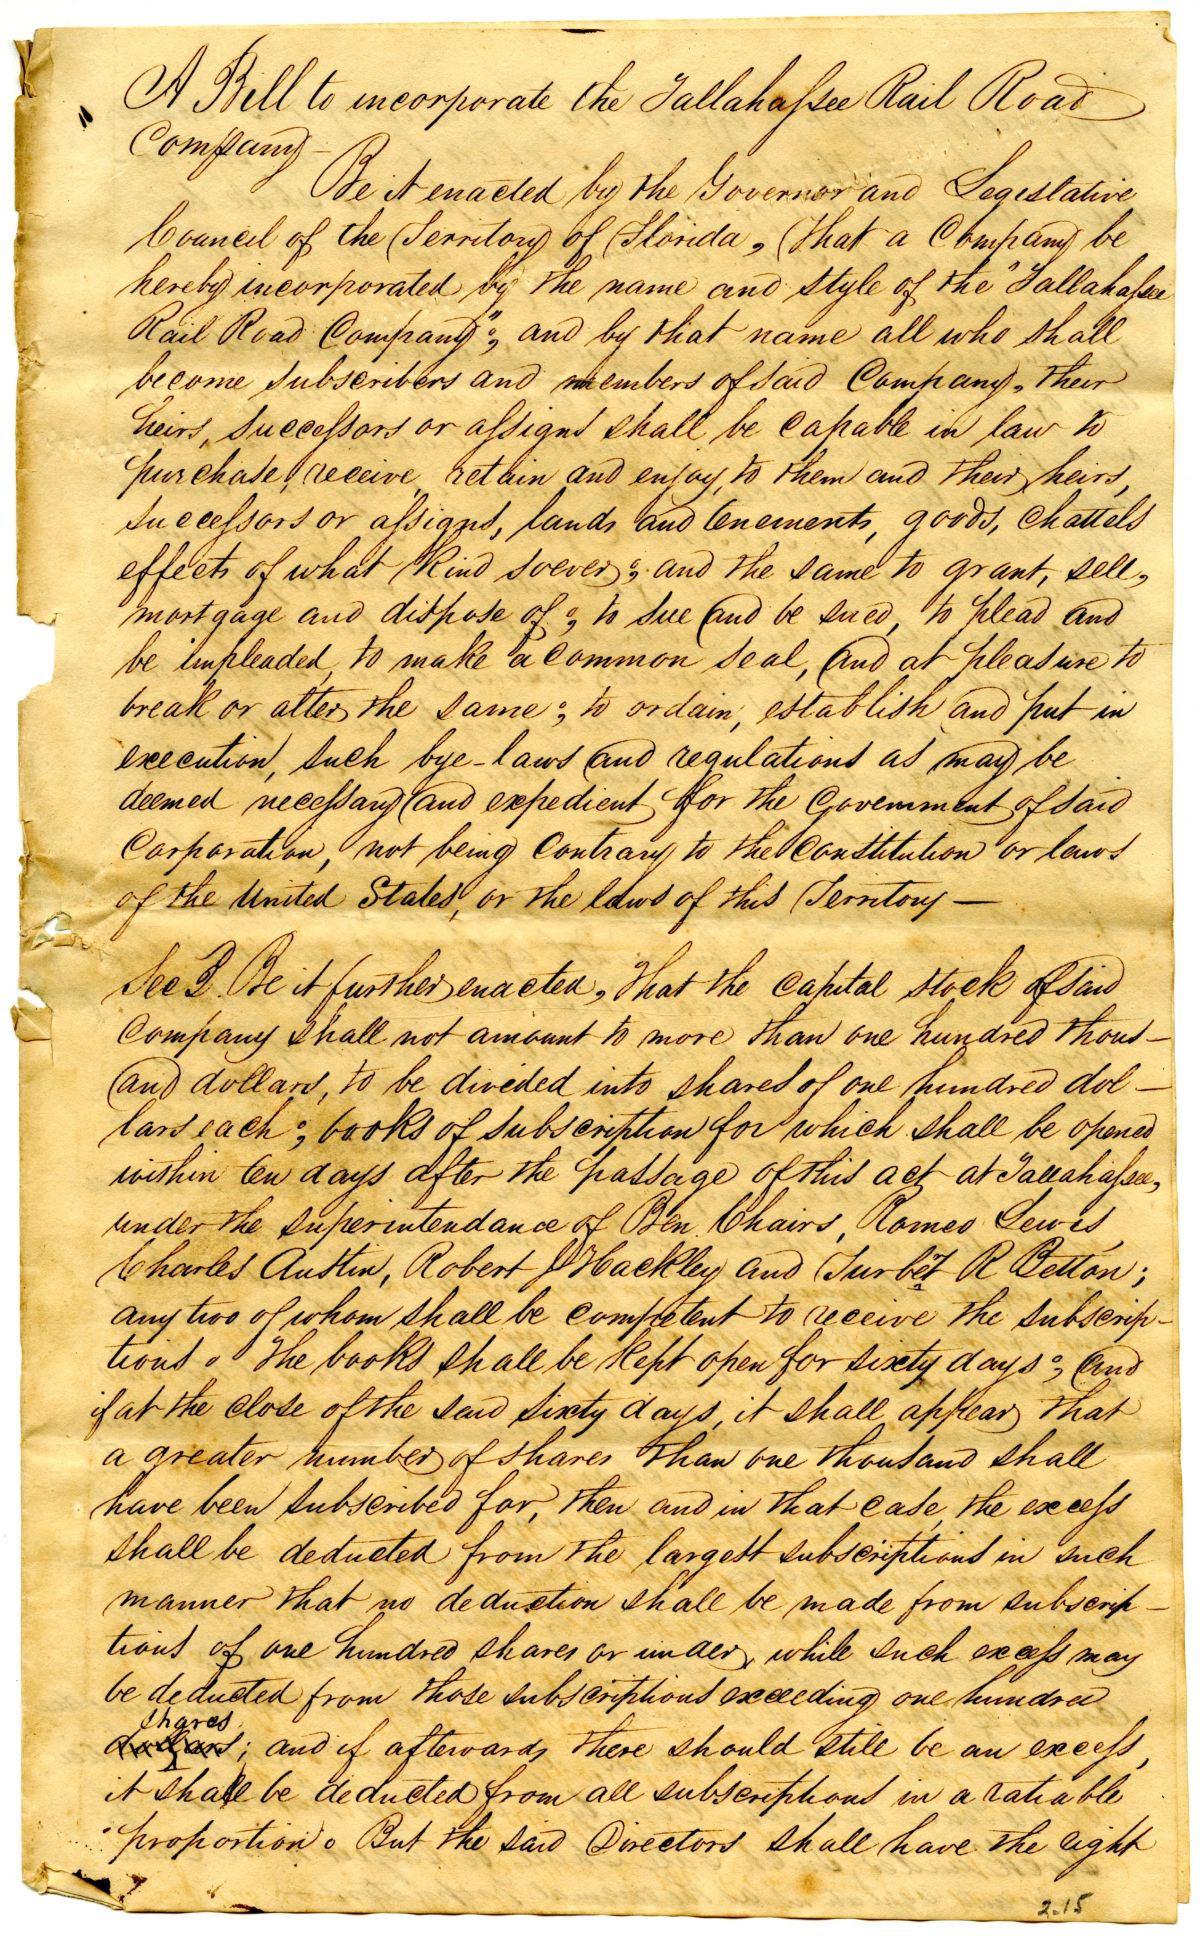 A Bill to incorporate the Tallahassee Rail Road
Company—
Be it enacted by the Governor and Legislative
Council of the Territory of Florida, That a Company be
hereby incorporated by the name and style of the "Tallahassee
Rail Road Company"; and by that name all who shall
become subscribers and members of said Company, their
heirs, successors or assigns shall be capable in law to
purchase, receive, retain and enjoy, to them and their heirs,
successors or assigns, lands and tenements, goods, chattels
effects of what kind soever; and the same to grant, sell,
mortgage and dispose of; to sue and be sued, to plead and
be impleaded, to make a common seal, and at pleasure to
break or alter the same; to ordain, establish and put in
execution, such bye-laws and regulations as may be
deemed necessary and expedient for the Government of said
Corporation, not being contrary to the Constitution or laws
of the United States, or the laws of this Territory—
Sec 2. Be it further enacted, That the capital stock of said
Company shall not amount to more than one hundred thous-
and dollars, to be divided into shares of one hundred dol-
lars each; books of subscription for which shall be opened
within ten days after the passage of this act at Tallahassee,
under the superintendance of Ben Chairs, Romeo Lewis,
Charles Austin, Robert J Hackley and Turbet R Betton;
any two of whom shall be competent to receive the subscrip-
tions. The books shall be kept open for sixty days; and
if at the close of the said sixty days, it shall appear that
a greater number of shares than one thousand shall
have been subscribed for, then and in that case, the excess
shall be deducted from the largest subscriptions in such
manner that no deduction shall be made from subscrip-
tions of one hundred shares or under, while such excess may
be deducted from those subscriptions exceeding one hundred
shares
dollars; and if afterwards there should still be an excess,
it shall be deducted from all subscriptions in a ratiable
proportion. But the said Directors shall have the right
2.15